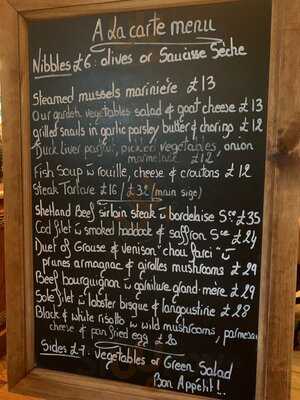 A La carte menu
Nibbles £6: olives or Saucisse Sèche
Steamed mussels marinière £13
Our garden vegetables salad & goat cheese £13
grilled snails in garlic parsley butter & chorizo £12
Duck liver parfait, pickled vegetables, onion
marmelade £12
Fish soup w rouille, cheese & croutons £12
Steak Tartare £16 / £32 (main size)
Shetland Beef sirloin steak w bordelaise Sce £35
Cod filet w smoked haddock & saffron Sce £24
Duet of Grouse & venison "chou farci" w
prunes armagnac & girolles mushrooms £29
Beef bourguignon w garniture grand-mère £29
Sole filet w lobster bisque & langoustine £28
Black & white risotto, w wild mushrooms, parmesan
cheese & pan fried egg £20
Sides £7: vegetables or Green Salad
Bon Appétit!!